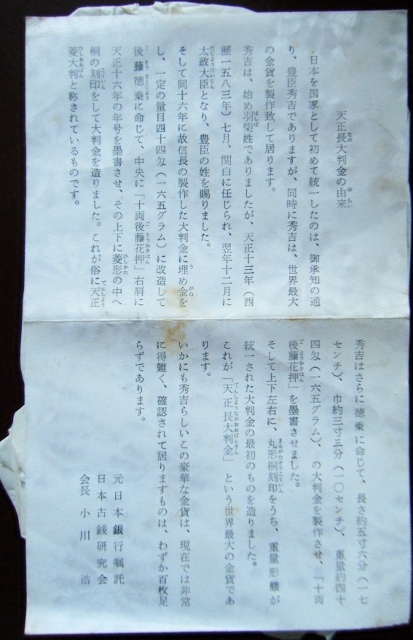 天正長大判金の由来
日本を国家として初めて統一したのは、御承知の通
り、豊臣秀吉でありますが、同時に秀吉は、世界最大
の金貨を製作致して居ります。
秀吉は、始め羽柴姓でありましたが、天正十三年（西
暦一五八三年）七月、関白に任じられ、翌年十二月に
太政大臣となり、豊臣の姓を賜りました。
そして同十六年に故信長の製作した大判金に埋め金を
し、一定の量目四十四匁（一六五グラム）に改造して
後藤徳乗に命じて、中央に「十両後藤花押」右肩に
天正十六年の年号を墨書させ、その上下に菱形の中へ
桐の刻印をして大判金を造りました。これが俗に天正
菱大判と称されているものです。
秀吉はさらに徳乗に命じて、長さ約五寸六分（一七
センチ）、巾約三寸三分（一〇センチ）、重量約四十
四匁（一六五グラム）、の大判金を製作させ、「十両
後藤花押」を墨書させました。
そして上下左右に、丸形桐刻印をうち、重量形態が
統一された大判金の最初のものを造りました。
これが「天正長大判金」という世界最大の金貨であ
ります。
いかにも秀吉らしいこの豪華な金貨は、現在では非常
に得難く、確認されて居りますものは、わずか百枚足
らずであります。
元日本銀行嘱託
日本古銭研究会
会長 小川 浩